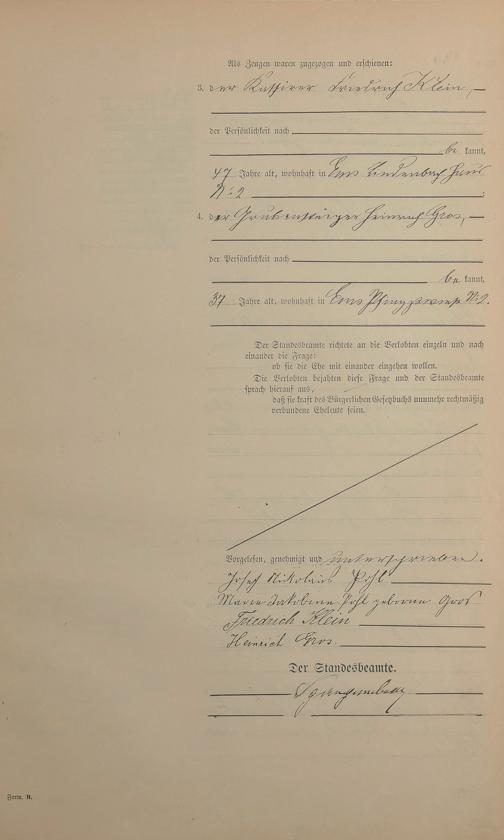 Als Zeugen waren zugezogen und erschienen:
3. der Kassirer Friedrich Klein,
der Persönlichkeit nach
be kannt,
47 Jahre alt, wohnhaft in Ems Lindenbach Haus
№ 2
4. der Grubensteiger Heinrich Gros,
der Persönlichkeit nach
be kannt,
37 Jahre alt, wohnhaft in Ems № 2.
Der Standesbeamte richtete an die Verlobten einzeln und nach
einander die Frage:
ob sie die Ehe mit einander eingehen wollen.
Die Verlobten bejahten diese Frage und der Standesbeamte
sprach hierauf aus,
daß sie kraft des Bürgerlichen Gesetzbuchs nunmehr rechtmäßig
verbundene Eheleute seien.
Vorgelesen, genehmigt und unterschrieben.
Josef Nikolaus Pohl
Maria Jakobine Pohl geborene Gros
Friedrich Klein
Heinrich Gros.
Der Standesbeamte.
Form. B.